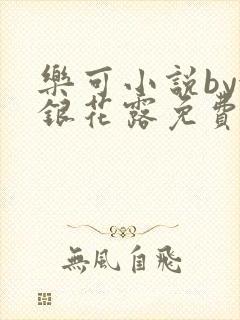 樂可小說by
銀花露免費
無風自飛